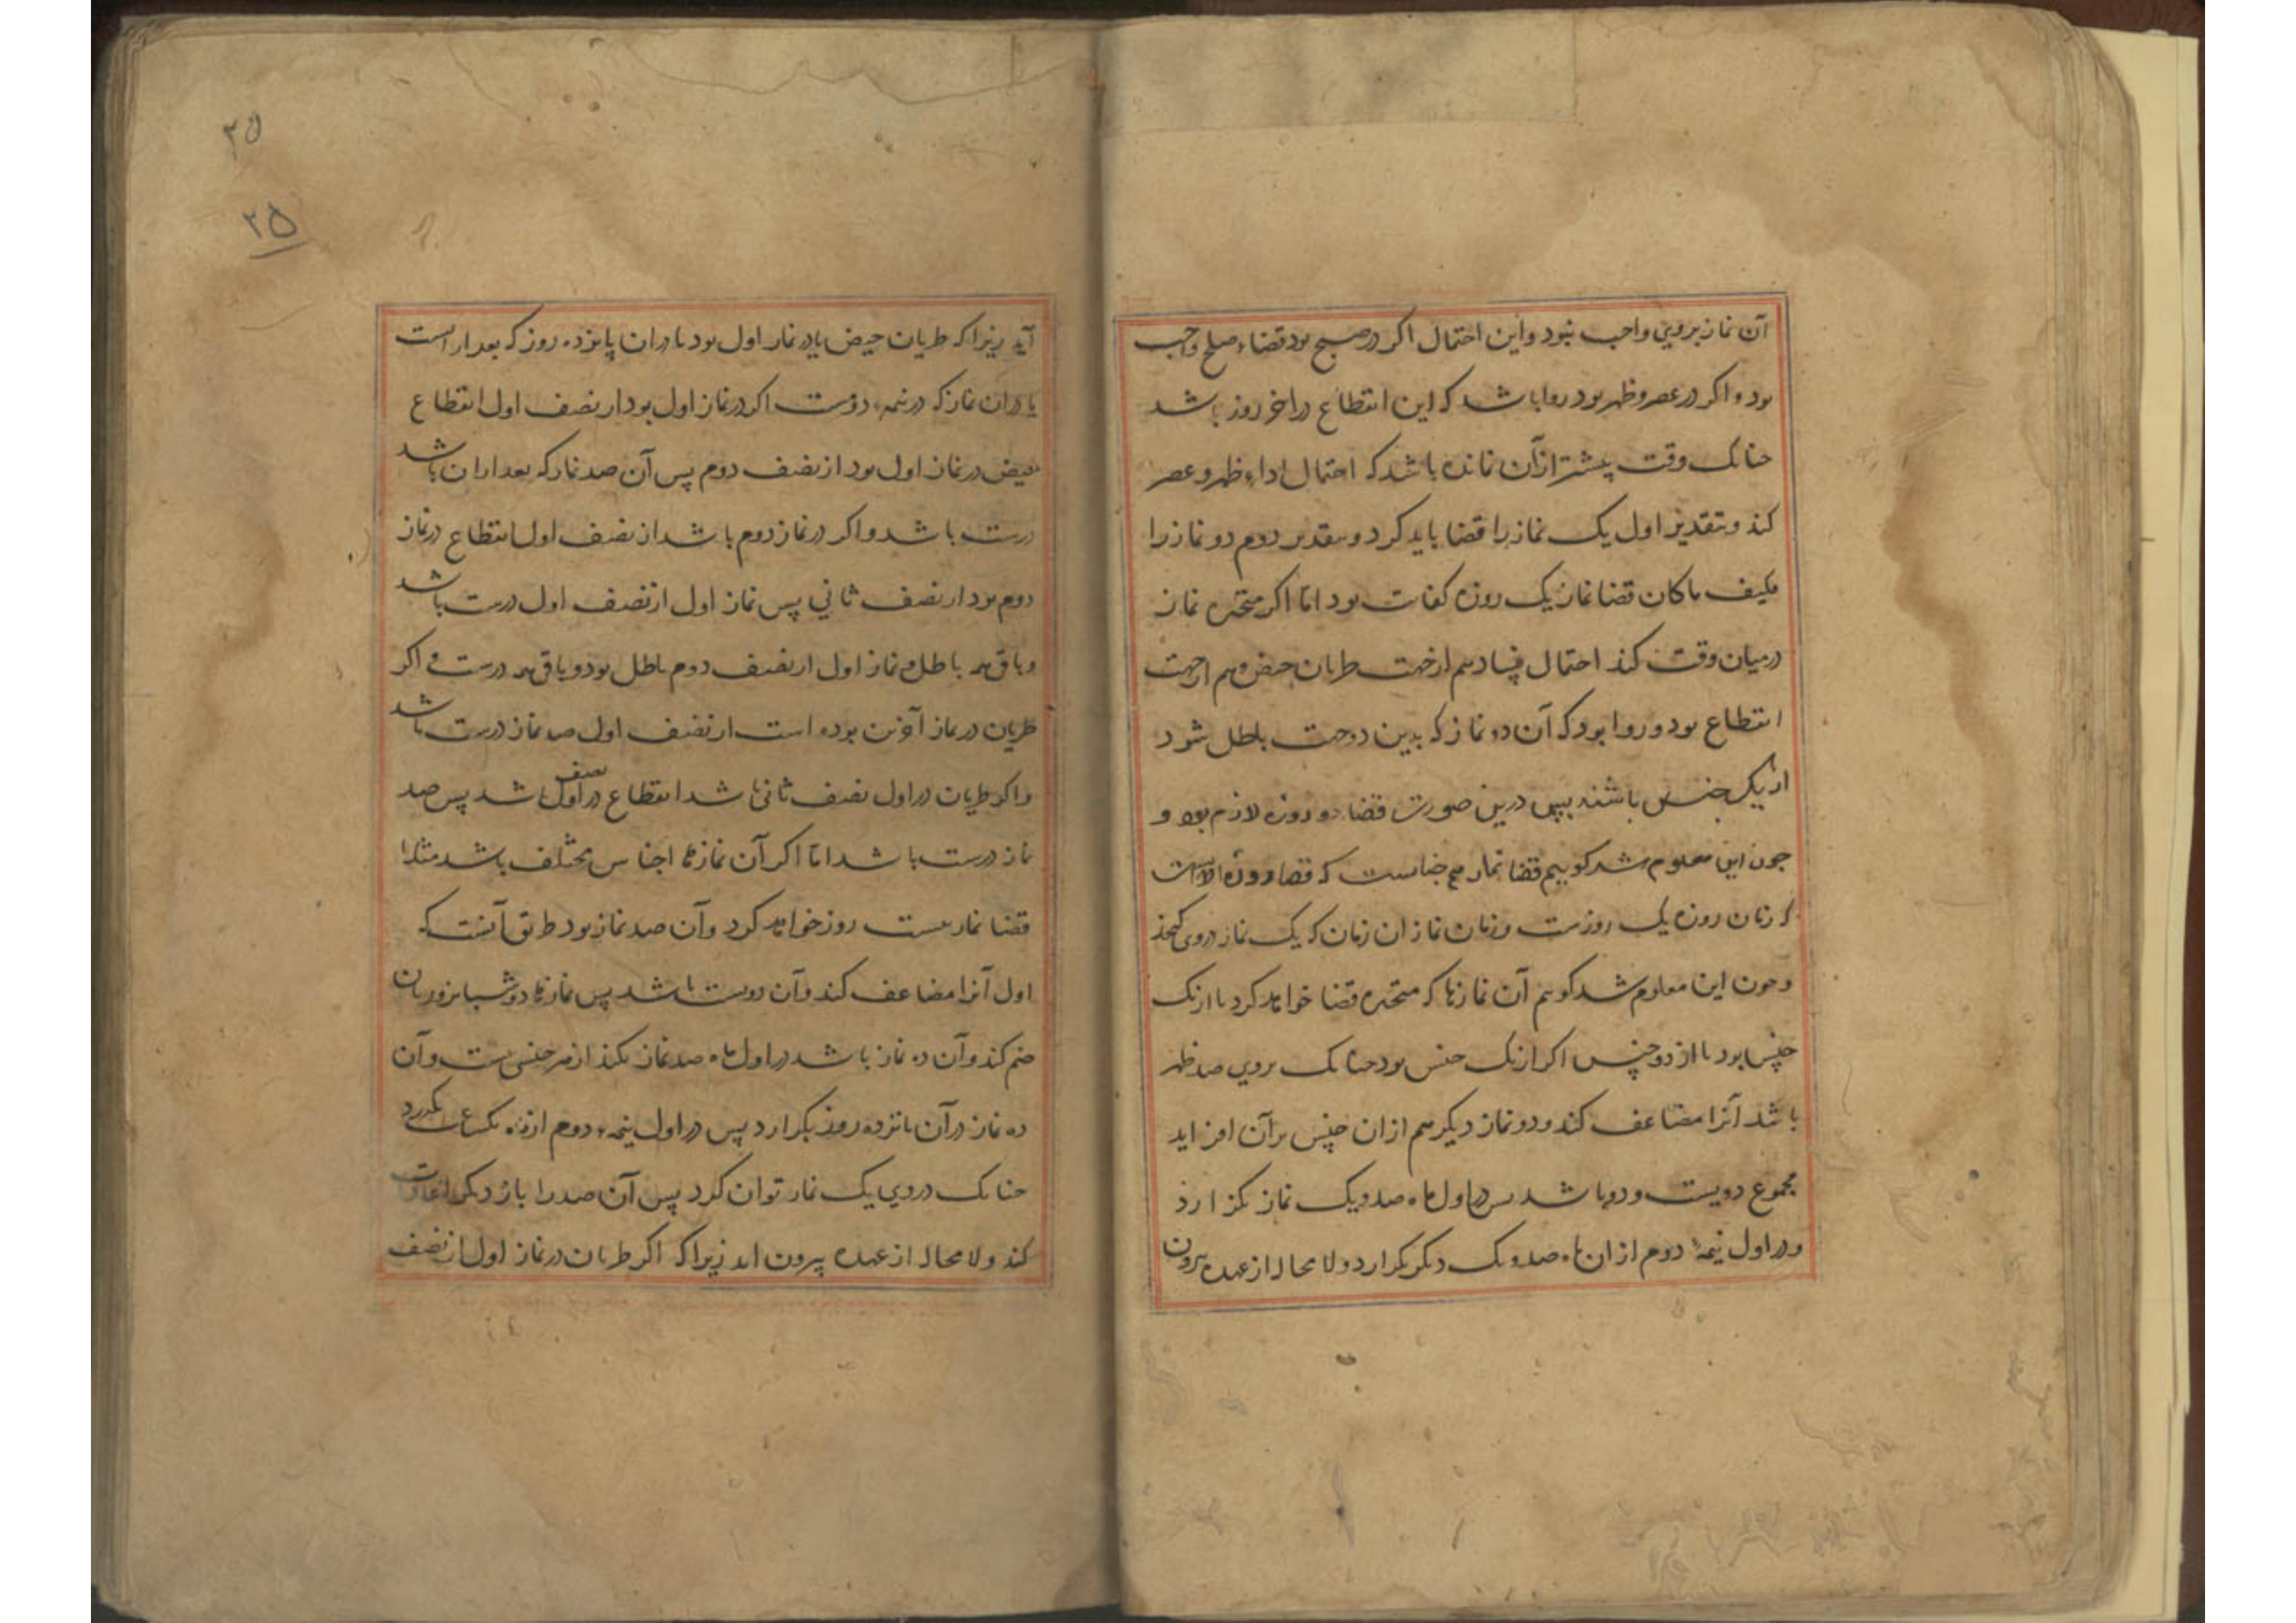 آن نماز بروي واجب نبود واين احتمال اكر در صبح بود قضاء صبح واجب
بود و اكر در عصر وظهر بود روا باشد كه اين انقطاع در اخر روز باشد
جنانك وقت بيشتر از آن نمانده باشد كه احتمال اداء ظهر و عصر
كند و بتقدير اول يك نماز را قضا بايد كرد و بتقدير دوم دو نماز را
فكيف ما كان قضا نماز يك روزه كفايت بود اما اكر متحيره نماز
در ميان وقت كند احتمال فساد هم از جهت طريان حيض و هم از جهت
انقطاع بود و روا بود كه آن دو نماز كه بدين دو جهت باطل شود
از يك جنس باشند بس درين صورت قضا دو روزه لازم بود و
جون اين معلوم شد كوييم قضا نماز هم جنانست كه قضا روزه الا آنست
كه زمان روزه يك روزست و زمان نماز ان زمان كه يك نماز دروى كنجد
و جون اين معلوم شد كوييم آن نمازها كه متحيره قضا خواهد كرد يا از يك
جنس بود يا از دو جنس اكر از يك جنس بود جنانك بروي صد ظهر
باشد آنرا مضاعف كند و دو نماز ديكر هم از ان جنس بر آن افزايد
مجموع دويست و دو باشد بس در اول ماه صد و يك نماز بكزارد
و در اول نيمهٔ دوم از ان ماه صد و يك ديكر بكزارد و لا محاله از عهده بيرون
۳۵
۲۵
آيد زيرا كه طريان حيض يا در نماز اول بود يا در ان پانزده روز كه بعد از است
يا در ان نماز كه در نيمهٔ دوست اكر در نماز اول بود از نصف اول انقطاع
حيض در نماز اول بود از نصف دوم پس آن صد نماز كه بعد از ان باشد
درست باشد و اكر در نماز دوم باشد از نصف اول انقطاع در نماز
دوم بود از نصف ثاني پس نماز اول از نصف اول درست باشد
و باقى همه باطل و نماز اول از نصف دوم باطل بود و باقى همه درست و اكر
طريان در نماز آخرين بوده است از نصف اول صد نماز درست باشد
و اكر طريان در اول نصف ثانى باشد انقطاع در اول نصف باشد پس صد
نماز درست باشد اما اكر آن نمازها اجناس مختلف باشد مثلا
قضا نماز بيست روز خواهد كرد و آن صد نماز بود طريق آنست كه
اول آنرا مضاعف كند و آن دويست باشد پس نمازها دو شبانروز بان
ضم كند و آن ده نماز باشد در اول ماه صد نماز بكند از هر جنس بيست و آن
ده نماز در آن پانزده روز بكزارد پس در اول نيمهٔ دوم از ماه يكساعت بكذرد
جنانك دروي يك نماز توان كرد پس آن صد را باز ديكر اعادت
كند و لا محاله از عهده بيرون ايد زيرا كه اكر طريان در نماز اول از نصف